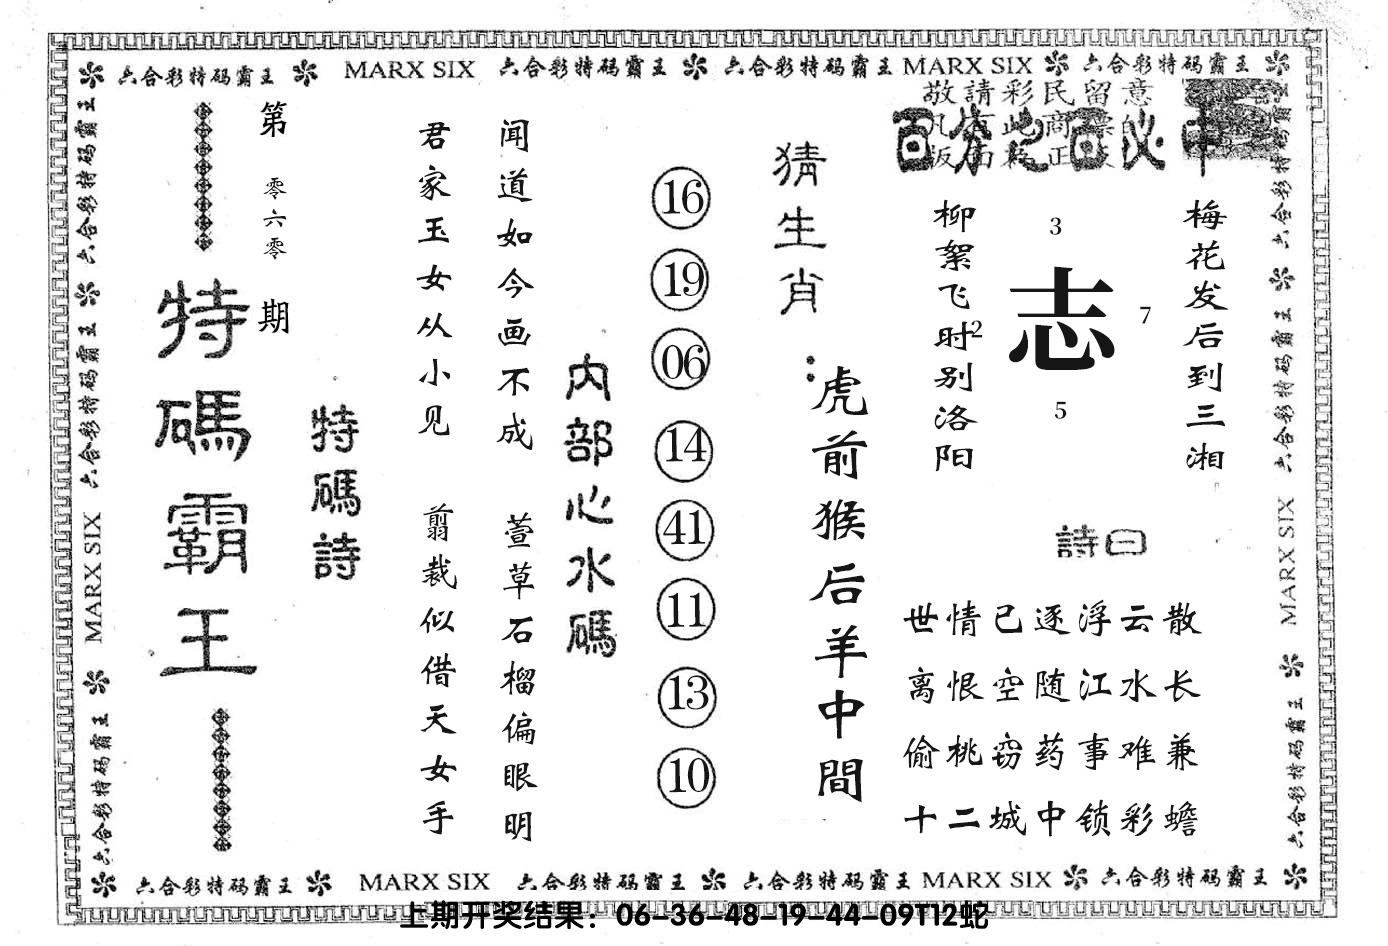 六合彩特码霸王 MARX SIX 六合彩特码霸王 六合彩特码霸王 MARX SIX 六合彩特码霸王
敬請彩民留意
百分之百必中
梅花发后到三湘
志
3
7
2
5
柳絮飞时别洛阳
詩曰
世情已逐浮云散
离恨空随江水长
偷桃窃药事难兼
十二城中锁彩蟾
猜生肖:
虎前猴后羊中間
16
19
06
14
41
11
13
10
内部心水碼
闻道如今画不成 萱草石榴偏眼明
君家玉女从小见 翦裁似借天女手
特碼詩
第零六零期
特碼霸王
六合彩特码霸王 六合彩特码霸王 MARX SIX 六合彩特码霸王
六合彩特码霸王 六合彩特码霸王 MARX SIX 六合彩特码霸王
六合彩特码霸王 MARX SIX 六合彩特码霸王 六合彩特码霸王 MARX SIX 六合彩特码霸王
上期开奖结果：06-36-48-19-44-09T12蛇